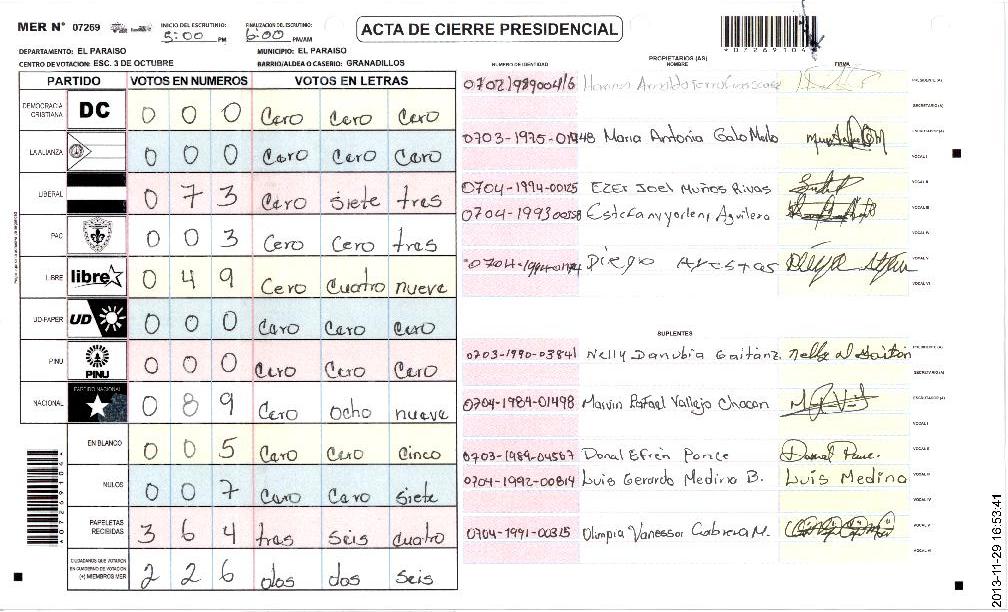 MER N° 07269
INICIO DEL ESCRUTINIO: 5:00 PM
FINALIZACION DEL ESCRUTINIO: 6:00 PM/AM
ACTA DE CIERRE PRESIDENCIAL
07269104
DEPARTAMENTO: EL PARAISO
MUNICIPIO: EL PARAISO
CENTRO DE VOTACION: ESC. 3 DE OCTUBRE
BARRIO/ALDEA O CASERIO: GRANADILLOS
PARTIDO VOTOS EN NUMEROS VOTOS EN LETRAS
DEMOCRACIA CRISTIANA DC 0 0 0 Cero Cero Cero
LA ALIANZA 0 0 0 Cero Cero Cero
LIBERAL 0 7 3 Cero siete tres
PAC 0 0 3 Cero Cero tres
LIBRE libre 0 4 9 Cero Cuatro nueve
UD-FAPER UD 0 0 0 Cero Cero Cero
PINU PINU 0 0 0 Cero Cero Cero
NACIONAL PARTIDO NACIONAL 0 8 9 Cero Ocho nueve
EN BLANCO 0 0 5 Cero Cero Cinco
NULOS 0 0 7 Cero Cero Siete
PAPELETAS RECIBIDAS 3 6 4 tres seis cuatro
CIUDADANOS QUE VOTARON EN CUADERNO DE VOTACION (+) MIEMBROS MER 2 2 6 dos dos seis
07269104
PROPIETARIOS (AS)
NUMERO DE IDENTIDAD NOMBRE FIRMA
PRESIDENTE (A)
SECRETARIO (A)
0703-1975-01448 Maria Antonia Galo Mollo ESCRUTADOR (A)
VOCAL I
0704-1994-00125 Ezer Joel Muños Rivas VOCAL II
0704-1993 Aguilera VOCAL III
VOCAL IV
Diego VOCAL V
VOCAL VI
SUPLENTES
0703-1990-03841 Nelly Danubia Gaitan PRESIDENTE (A)
SECRETARIO (A)
0704-1984-01498 Marvin Rafael Vallejo Chacon ESCRUTADOR (A)
VOCAL I
0703-1989-04567 Donal Efren Ponce VOCAL II
0704-1992-00814 Luis Gerardo Medina B. Luis Medina VOCAL III
VOCAL IV
0704-1991-00315 Olimpia Vanessa Cabrera M. VOCAL V
VOCAL VI
2013-11-29 16:53:41